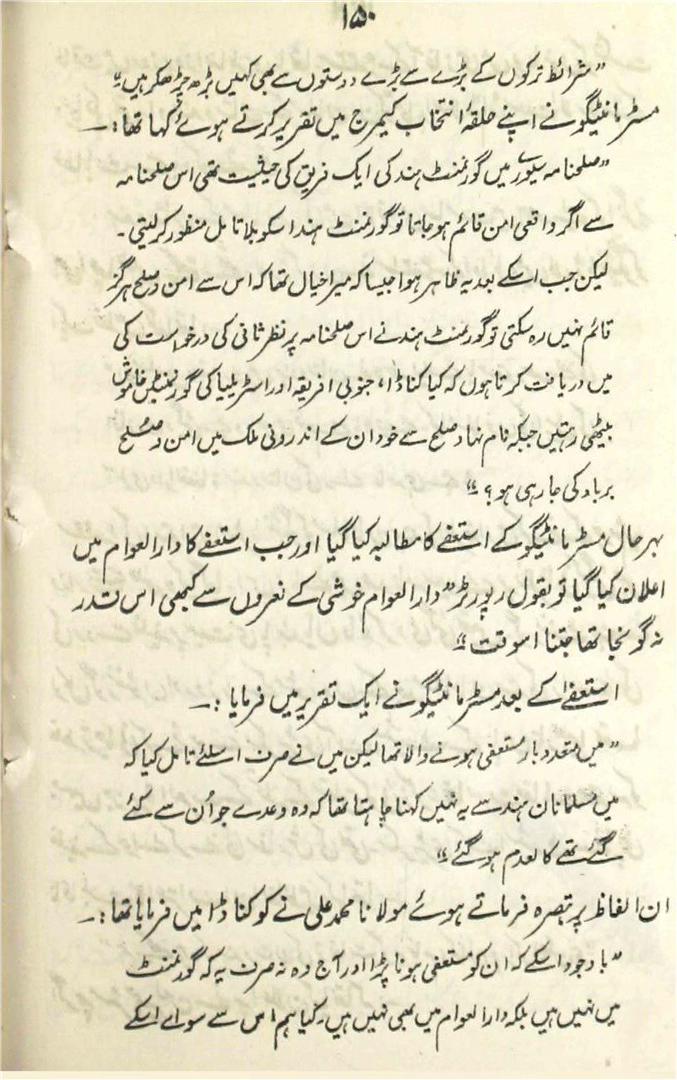 ۱۵۰
"شرائط ترکوں کے بڑے سے بڑے دوستوں سے بھی کہیں بڑھ چڑھکر ہیں"
مسٹر مانٹیگو نے اپنے حلقۂ انتخاب کیمبرج میں تقریر کرتے ہوئے کہا تھا:۔
"صلحنامہ سیورے میں گورنمنٹ ہند کی ایک فریق کی حیثیت تھی اس صلحنامہ
سے اگر واقعی امن قائم ہو جاتا تو گورنمنٹ ہند اسکو بلا تامل منظور کر لیتی۔
لیکن جب اسکے بعد یہ ظاہر ہوا جیسا کہ میرا خیال تھا کہ اس سے امن و صلح ہرگز
قائم نہیں رہ سکتی تو گورنمنٹ ہند نے اس صلحنامہ پر نظر ثانی کی درخواست کی
میں دریافت کرتا ہوں کہ کیا کناڈا، جنوبی افریقہ اور اسٹریلیا کی گورنمنٹیں خاموش
بیٹھی رہتیں جبکہ نام نہاد صلح سے خود ان کے اندرونی ملک میں امن و صلح
برباد کی جا رہی ہو؟"
بہرحال مسٹر مانٹیگو کے استعفے کا مطالبہ کیا گیا اور جب استعفے کا دارالعوام میں
اعلان کیا گیا تو بقول رپورٹر "دارالعوام خوشی کے نعروں سے کبھی اس قدر
نہ گونجا تھا جتنا اسوقت"
استعفےٰ کے بعد مسٹر مانٹیگو نے ایک تقریر میں فرمایا:۔
"میں متعدد بار مستعفی ہونے والا تھا لیکن میں نے صرف اسلئے تامل کیا کہ
میں مسلمانان ہند سے یہ نہیں کہنا چاہتا تھا کہ وہ وعدے جو اُن سے کئے
گئے تھے کالعدم ہو گئے"
ان الفاظ پر تبصرہ فرماتے ہوئے مولانا محمد علی نے کوکناڈا میں فرمایا تھا:۔
"باوجود اسکے کہ ان کو مستعفی ہونا پڑا اور آج وہ نہ صرف یہ کہ گورنمنٹ
میں نہیں ہیں بلکہ دارالعوام میں بھی نہیں ہیں۔ کیا ہم اس سے سوائے اسکے